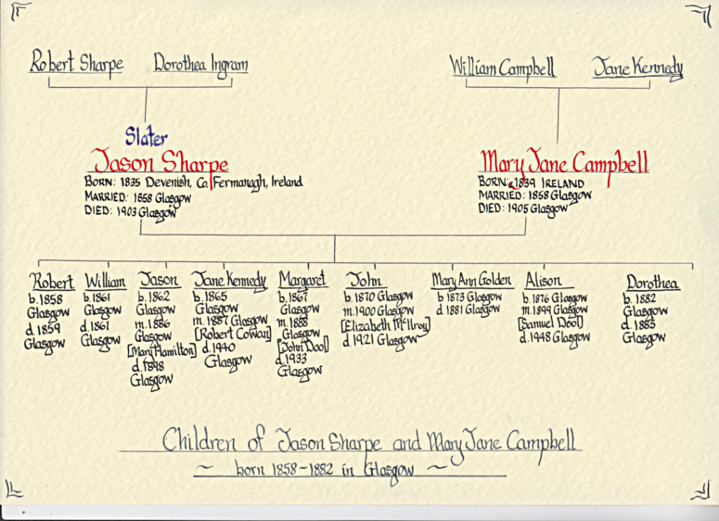 Robert Sharpe Dorothea Ingram
William Campbell Jane Kennedy
Slater
Jason Sharpe
BORN: 1835 Devenish, Co. Fermanagh, Ireland
MARRIED: 1858 Glasgow
DIED: 1903 Glasgow
Mary Jane Campbell
BORN: 1839 IRELAND
MARRIED: 1858 Glasgow
DIED: 1905 Glasgow
Robert
b. 1858
Glasgow
d 1859
Glasgow
William
b. 1861
Glasgow
d. 1861
Glasgow
Jason
b. 1862
Glasgow
m. 1886
Glasgow
[Mary Hamilton]
d. 1898
Glasgow
Jane Kennedy
b. 1865
Glasgow
m. 1887 Glasgow
[Robert Cowan]
d. 1940
Glasgow
Margaret
b. 1867
Glasgow
m. 1888
Glasgow
[John Dool]
d. 1933
Glasgow
John
b. 1870 Glasgow
m. 1900 Glasgow
[Elizabeth McIlroy]
d. 1921 Glasgow
Mary Ann Golden
b 1873 Glasgow
d. 1881 Glasgow
Alison
b. 1876 Glasgow
m. 1899 Glasgow
[Samuel Dool]
d. 1948 Glasgow
Dorothea
b. 1882
Glasgow
d. 1885
Glasgow
Children of Jason Sharpe and Mary Jane Campbell
~ born 1858 - 1882 in Glasgow ~